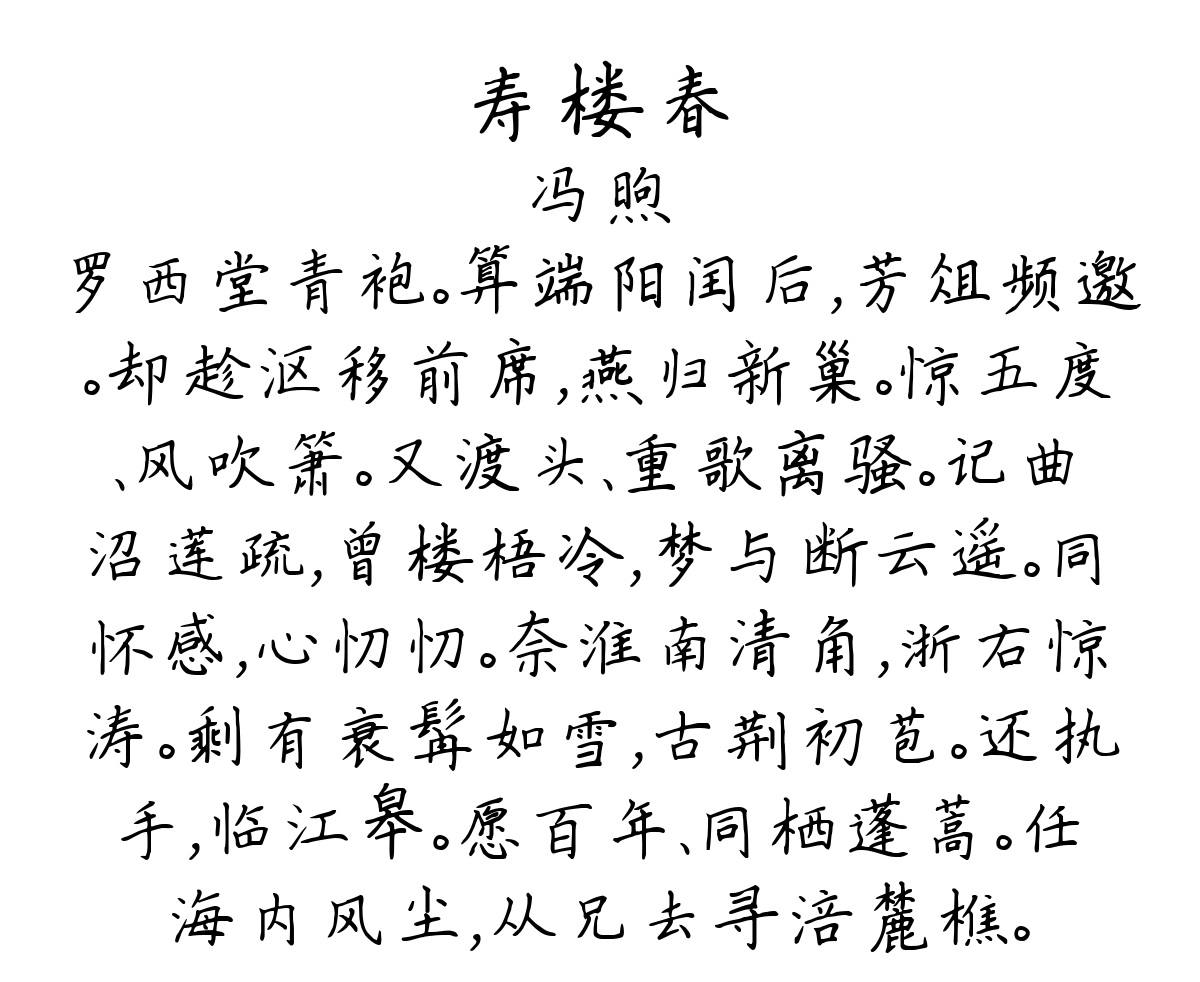 寿楼春
冯煦
罗西堂青袍。算端阳闰后,芳俎频邀
。却趁沤移前席,燕归新巢。惊五度
、风吹箫。又渡头、重歌离骚。记曲
沼莲疏,曾楼梧冷,梦与断云遥。同
怀感,心忉忉。奈淮南清角,浙右惊
涛。剩有衰髯如雪,古荆初苞。还执
手,临江皋。愿百年、同栖蓬蒿。任
海内风尘,从兄去寻涪麓樵。